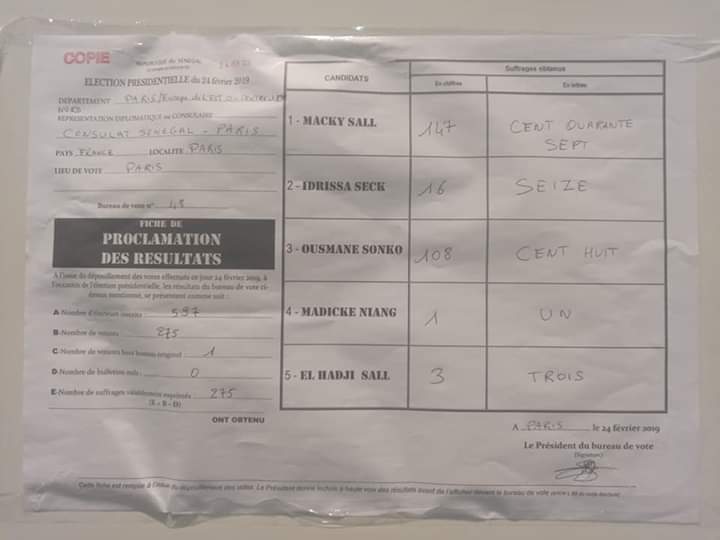 COPIE
REPUBLIQUE DU SENEGAL
ELECTION PRESIDENTIELLE du 24 février 2019
DÉPARTEMENT PARIS/Europe de
NORD
REPRÉSENTATION DIPLOMATIQUE ou CONSULAIRE
CONSULAT SENEGAL - PARIS
PAYS FRANCE LOCALITE PARIS
LIEU DE VOTE PARIS
Bureau de vote n° 48
FICHE DE
PROCLAMATION
DES RESULTATS
A l'issue du dépouillement des votes effectués ce jour 24 février 2019, à
l'occasion de l'élection présidentielle, les résultats du bureau de vote ci-
dessus mentionné, se présentent comme suit :
A-Nombre d'électeurs inscrits 597
B-Nombre de votants 275
C-Nombre de votants hors bureau originel 1
D-Nombre de bulletins nuls 0
E-Nombre de suffrages valablement exprimés 275
(E = B - D)
ONT OBTENU
CANDIDATS
Suffrages obtenus
En chiffres
En lettres
1 - MACKY SALL 147 CENT QUARANTE
SEPT
2 - IDRISSA SECK 16 SEIZE
3 - OUSMANE SONKO 108 CENT HUIT
4 - MADICKE NIANG 1 UN
5 - EL HADJI SALL 3 TROIS
A PARIS le 24 février 2019
Le Président du bureau de vote
(Signature)
Cette fiche est remplie à l'issue du dépouillement des votes. Le Président donne lecture à haute voix des résultats avant de l'afficher devant le bureau de vote